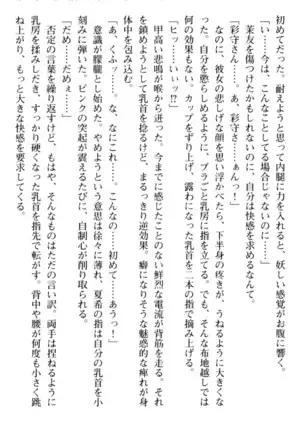 初めてだった。耐えようと思って内腿に力を入れると、妖しい感覚がお腹に響く。
「い……今は、こんなことしてる場合じゃないのに……」
茉友を傷つけたかもしれないのに、自分は快感を求めるなんて。
「彩守さん……。あ、彩守さぁんっ！」
なのに、彼女の悲しげな顔を思い浮かべたら、下半身の疼きが、うねるように大きくなった。自分を懲らしめるように、ブラごと乳房に指を立てる。でも、そんな布地越しでは何の効果もない。カップをずり上げ、露わになった乳首を二本の指で摘み上げる。
「ヒッ……いぃッ!?」
甲高い悲鳴が喉から迸った。今までに感じたことのない鮮烈な電流が背筋を走る。それを鎮めようとして乳首を捻るけど、まるっきり逆効果。癖になりそうな魅惑的な痺れが身体中を包み込む。
「あ、くふッ……。な、なにこれ……。こんなの……初めて……あうっ！」
意識が朦朧とし始めた。やめようという意思は徐々に薄れ、夏希の指は自分の乳首を小刻みに弾いた。ピンクの突起が震えるたびに、自制心が削り取られる。
「だめ……だめぇ……」
否定の言葉を繰り返すけど、もはや、そんなものはただの言い訳。両手は捏ねるように乳房を揉みしだき、すっかり硬くなった乳首を指先で転がす。背中や腰が何度も小さく跳ね上がり、もっと大きな快感を要求してくる。